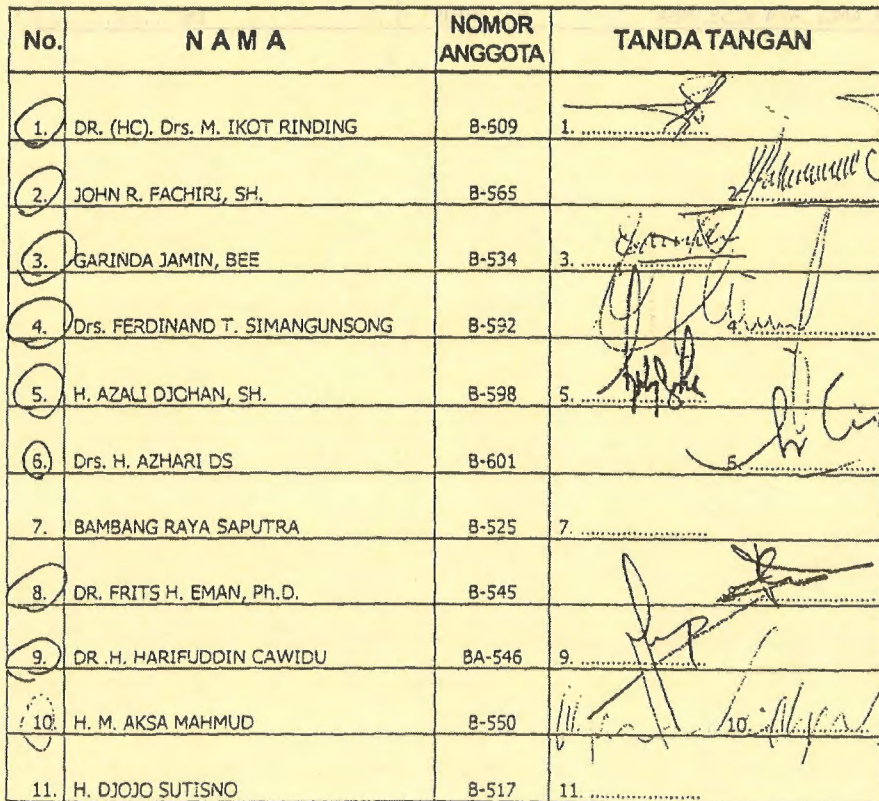 No. N A M A NOMOR ANGGOTA TANDA TANGAN
1. DR. (HC). Drs. M. IKOT RINDING B-609 1. ....................
2. JOHN R. FACHIRI, SH. B-565 2. ....................
3. GARINDA JAMIN, BEE B-534 3. ....................
4. Drs. FERDINAND T. SIMANGUNSONG B-592 4. ....................
5. H. AZALI DJOHAN, SH. B-598 5. ....................
6. Drs. H. AZHARI DS B-601 6. ....................
7. BAMBANG RAYA SAPUTRA B-525 7. ....................
8. DR. FRITS H. EMAN, Ph.D. B-545 8. ....................
9. DR .H. HARIFUDDIN CAWIDU BA-546 9. ....................
10. H. M. AKSA MAHMUD B-550 10. ....................
11. H. DJOJO SUTISNO B-517 11. ....................